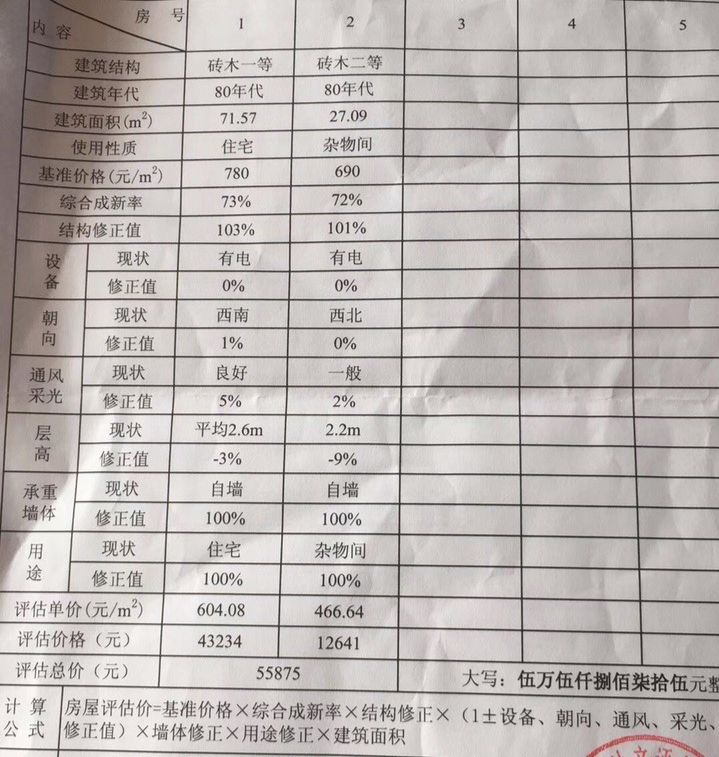 房 号
内 容
1 2 3 4 5
建筑结构 砖木一等 砖木二等
建筑年代 80年代 80年代
建筑面积(m²) 71.57 27.09
使用性质 住宅 杂物间
基准价格(元/m²) 780 690
综合成新率 73% 72%
结构修正值 103% 101%
设备 现状 有电 有电
修正值 0% 0%
朝向 现状 西南 西北
修正值 1% 0%
通风采光 现状 良好 一般
修正值 5% 2%
层高 现状 平均2.6m 2.2m
修正值 -3% -9%
承重墙体 现状 自墙 自墙
修正值 100% 100%
用途 现状 住宅 杂物间
修正值 100% 100%
评估单价(元/m²) 604.08 466.64
评估价格（元） 43234 12641
评估总价（元） 55875 大写：伍万伍仟捌佰柒拾伍元整
计算公式 房屋评估价=基准价格×综合成新率×结构修正×（1±设备、朝向、通风、采光、
修正值）×墙体修正×用途修正×建筑面积